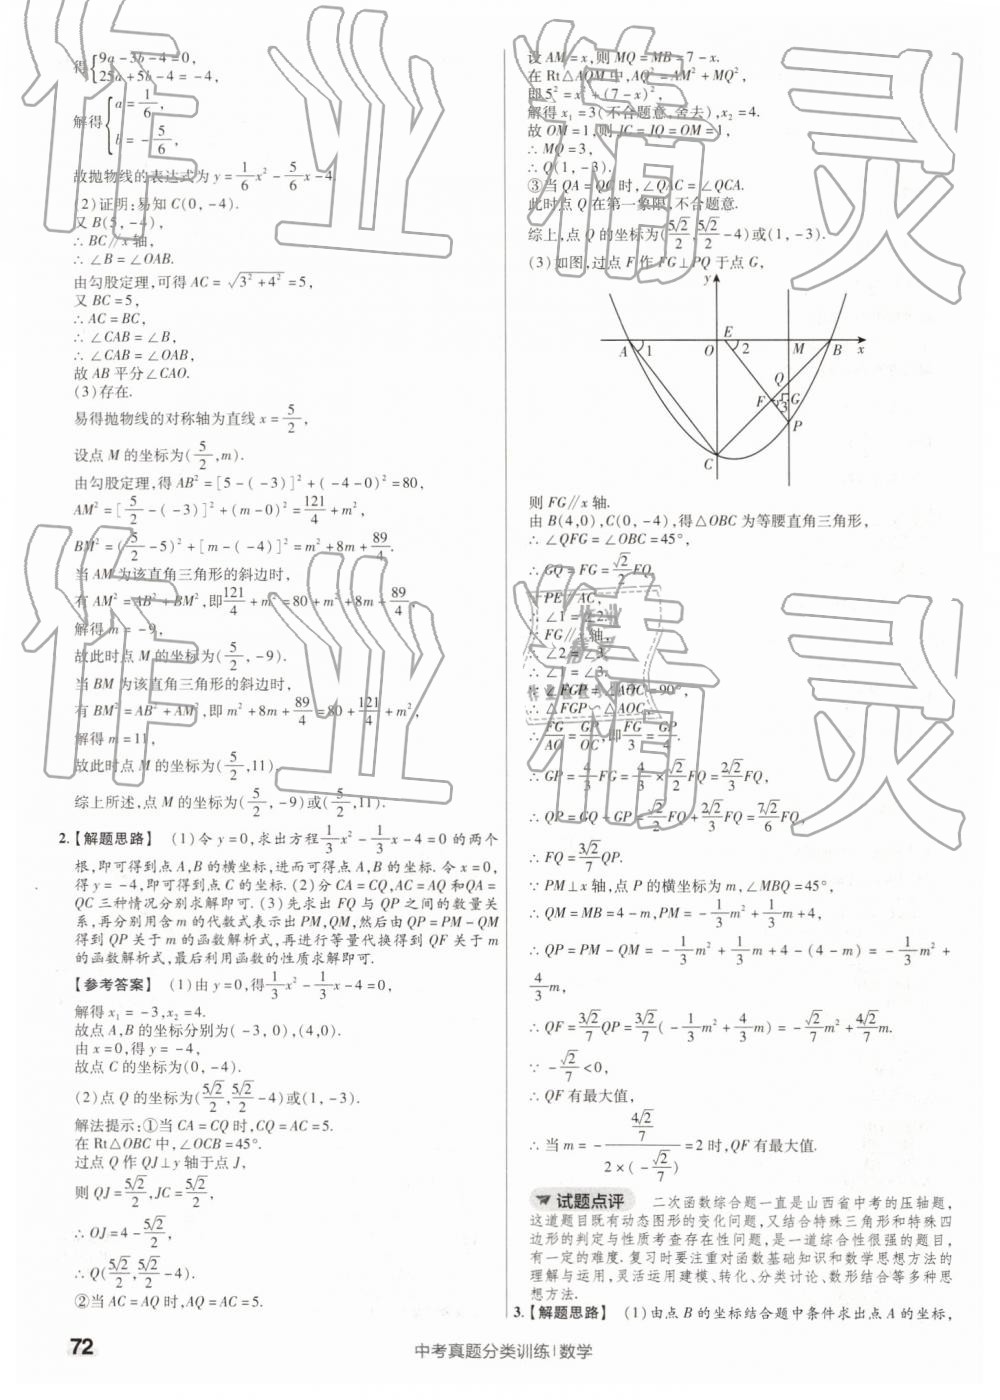 得{9a-3b-4=0,
25a+5b-4=-4,
解得{a=1/6,
b=-5/6,
故抛物线的表达式为y=1/6x²-5/6x-4.
(2)证明:易知C(0,-4).
又B(5,-4),
∴BC∥x轴,
∴∠B=∠OAB.
由勾股定理,可得AC=√(3²+4²)=5,
又BC=5,
∴AC=BC,
∴∠CAB=∠B,
∴∠CAB=∠OAB,
故AB平分∠CAO.
(3)存在.
易得抛物线的对称轴为直线x=5/2,
设点M的坐标为(5/2,m).
由勾股定理,得AB²=[5-(-3)]²+(-4-0)²=80,
AM²=[5/2-(-3)]²+(m-0)²=121/4+m²,
BM²=(5/2-5)²+[m-(-4)]²=m²+8m+89/4.
当AM为该直角三角形的斜边时,
有AM²=AB²+BM²,即121/4+m²=80+m²+8m+89/4,
解得m=-9,
故此时点M的坐标为(5/2,-9).
当BM为该直角三角形的斜边时,
有BM²=AB²+AM²,即m²+8m+89/4=80+121/4+m²,
解得m=11,
故此时点M的坐标为(5/2,11).
综上所述,点M的坐标为(5/2,-9)或(5/2,11).
2.【解题思路】 (1)令y=0,求出方程1/3x²-1/3x-4=0的两个
根,即可得到点A,B的横坐标,进而可得点A,B的坐标.令x=0,
得y=-4,即可得到点C的坐标.(2)分CA=CQ,AC=AQ和QA=
QC三种情况分别求解即可.(3)先求出FQ与QP之间的数量关
系,再分别用含m的代数式表示出PM,QM,然后由QP=PM-QM
得到QP关于m的函数解析式,再进行等量代换得到QF关于m
的函数解析式,最后利用函数的性质求解即可.
【参考答案】 (1)由y=0,得1/3x²-1/3x-4=0,
解得x₁=-3,x₂=4.
故点A,B的坐标分别为(-3,0),(4,0).
由x=0,得y=-4,
故点C的坐标为(0,-4).
(2)点Q的坐标为(5√2/2,5√2/2-4)或(1,-3).
解法提示:①当CA=CQ时,CQ=AC=5.
在Rt△OBC中,∠OCB=45°.
过点Q作QJ⊥y轴于点J,
则QJ=5√2/2,JC=5√2/2,
∴OJ=4-5√2/2,
∴Q(5√2/2,5√2/2-4).
②当AC=AQ时,AQ=AC=5.
设AM=x,则MQ=MB=7-x.
在Rt△AQM中,AQ²=AM²+MQ²,
即5²=x²+(7-x)²,
解得x₁=3(不合题意,舍去),x₂=4.
故OM=1,则JC=JQ=OM=1,
∴MQ=3,
∴Q(1,-3).
③当QA=QC时,∠QAC=∠QCA.
此时点Q在第一象限,不合题意.
综上,点Q的坐标为(5√2/2,5√2/2-4)或(1,-3).
(3)如图,过点F作FG⊥PQ于点G,
y
A 1 O E 2 M B x
Q
F 3 G
P
C
则FG∥x轴.
由B(4,0),C(0,-4),得△OBC为等腰直角三角形,
∴∠QFG=∠OBC=45°,
∴GQ=FG=√2/2FQ.
∵PE∥AC,
∴∠1=∠2.
∵FG∥x轴,
∴∠2=∠3,
∴∠1=∠3.
∵∠FGP=∠AOC=90°,
∴△FGP∽△AOC,
∴FG/AO=GP/OC,即FG/3=GP/4.
∴GP=4/3FG=4/3×√2/2FQ=2√2/3FQ,
∴QP=GQ+GP=√2/2FQ+2√2/3FQ=7√2/6FQ,
∴FQ=3√2/7QP.
∵PM⊥x轴,点P的横坐标为m,∠MBQ=45°,
∴QM=MB=4-m,PM=-1/3m²+1/3m+4,
∴QP=PM-QM=-1/3m²+1/3m+4-(4-m)=-1/3m²+
4/3m,
∴QF=3√2/7QP=3√2/7(-1/3m²+4/3m)=-√2/7m²+4√2/7m.
∵-√2/7<0,
∴QF有最大值,
∴当m=-(4√2/7)/(2×(-√2/7))=2时,QF有最大值.
试题点评 二次函数综合题一直是山西省中考的压轴题,
这道题目既有动态图形的变化问题,又结合特殊三角形和特殊四
边形的判定与性质考查存在性问题,是一道综合性很强的题目,
有一定的难度.复习时要注重对函数基础知识和数学思想方法的
理解与运用,灵活运用建模、转化、分类讨论、数形结合等多种思
想方法.
3.【解题思路】 (1)由点B的坐标结合题中条件求出点A的坐标,
72
中考真题分类训练|数学
作业精灵
作业精灵